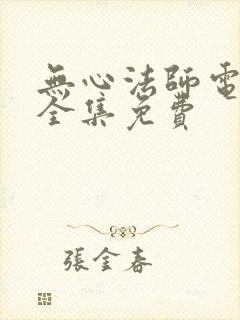 無心法師電
全集免費
張金春